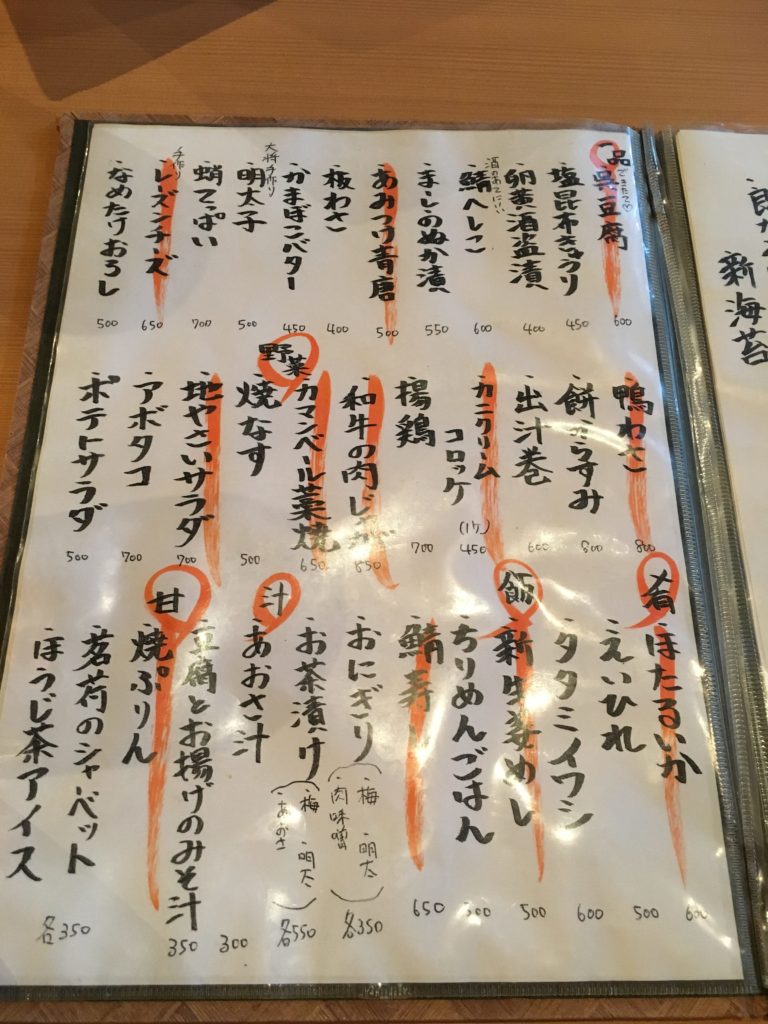 一品
できたて♡
呉豆腐
600
塩昆布きゅうり
450
卵黄酒盗漬
400
酒のあてにいい
鯖へしこ
600
ましのぬか漬
550
あみつけ青唐
500
板わさ
400
大将手作り
かまぼこバター
450
明太子
500
蛸てっぱい
700
手作り
レーズンチーズ
650
なめたけおろし
500
鴨わさ
800
餅からすみ
800
出汁巻
600
カニクリーム
コロッケ
(1ケ)
450
揚鶏
700
和牛の肉じゃが
850
野菜
カマンベール藁焼
650
焼なす
500
地やさいサラダ
700
アボタコ
700
ポテトサラダ
500
肴
ほたるいか
600
えいひれ
500
タタミイワシ
600
飯
新生姜めし
500
ちりめんごはん
300
鯖寿し
650
おにぎり
(梅 明太
肉味噌)
各350
お茶漬け
(梅 明太
あおさ)
各550
汁
あおさ汁
300
豆腐とお揚げのみそ汁
350
甘
焼ぷりん
茗荷のシャーベット
ほうじ茶アイス
各350
新海苔